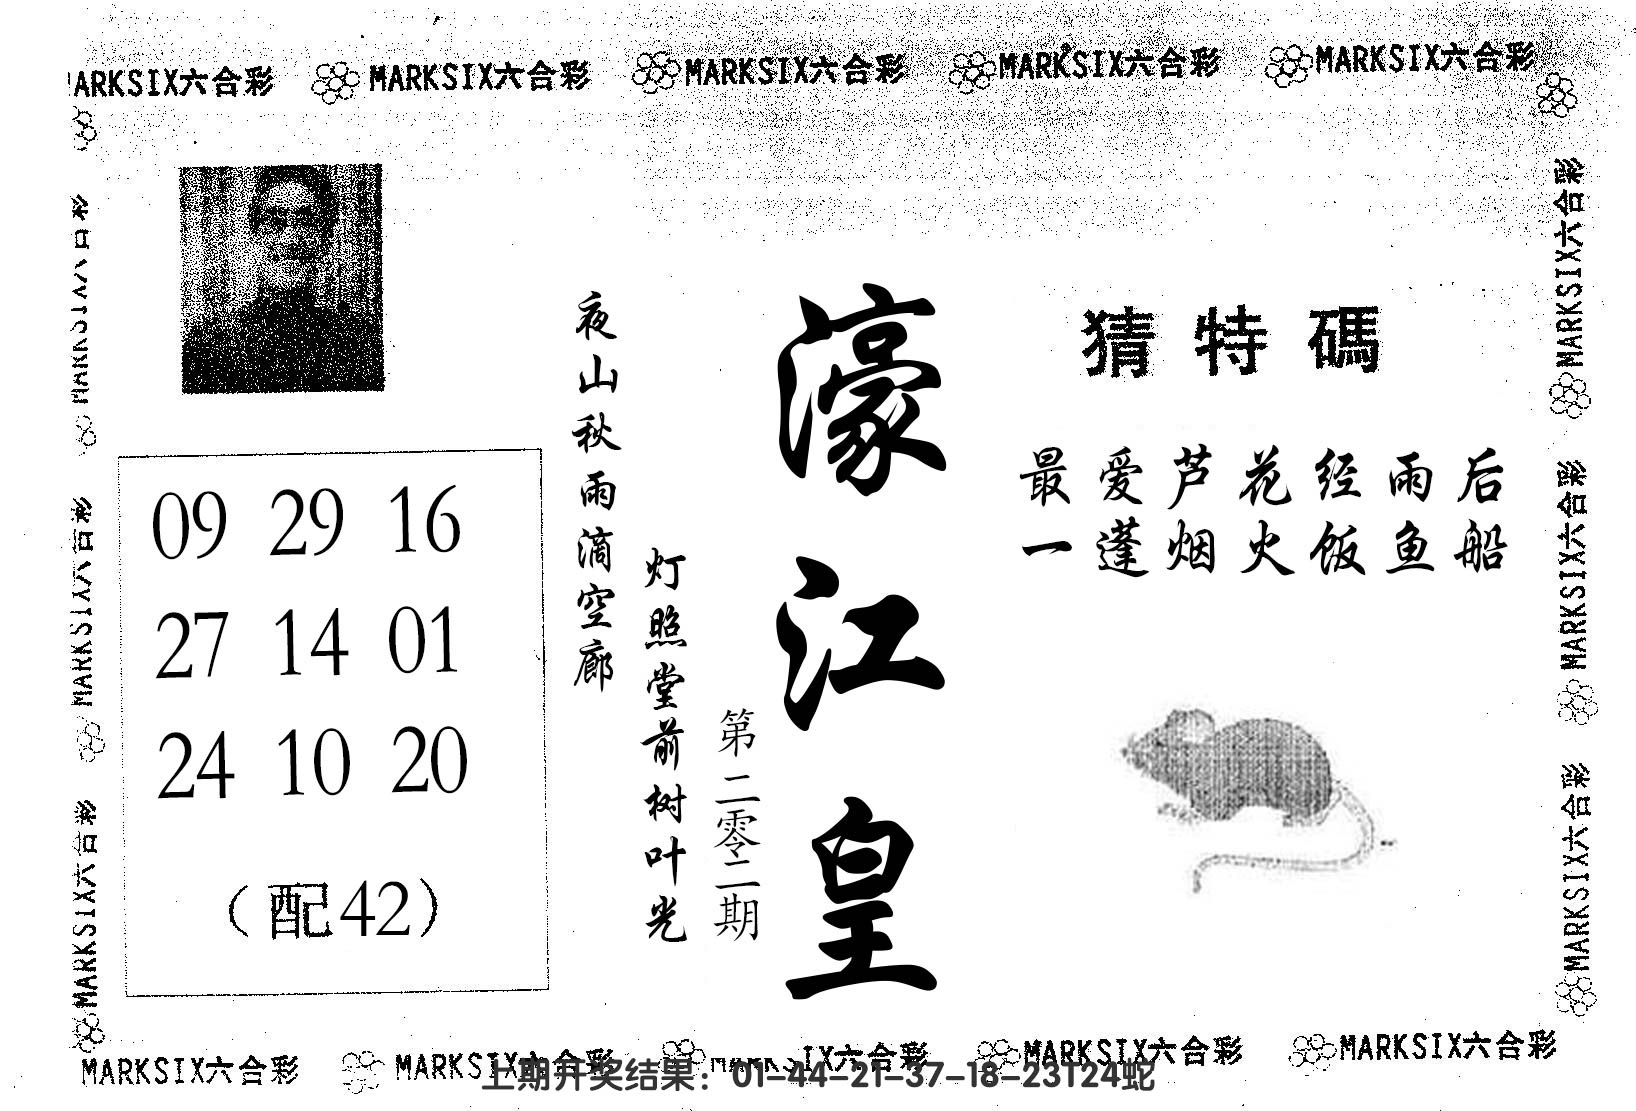 MARKSIX六合彩 MARKSIX六合彩 MARKSIX六合彩 MARKSIX六合彩 MARKSIX六合彩
MARKSIX六合彩
MARKSIX六合彩
MARKSIX六合彩
MARKSIX六合彩
MARKSIX六合彩
MARKSIX六合彩
猜特碼
最爱芦花经雨后
一蓬烟火饭鱼船
濠江皇
第二零二期
夜山秋雨滴空廊
灯照堂前树叶光
09 29 16
27 14 01
24 10 20
（配42）
MARKSIX六合彩 MARKSIX六合彩 MARKSIX六合彩 MARKSIX六合彩 MARKSIX六合彩
上期开奖结果：01-44-21-37-18-23T24蛇